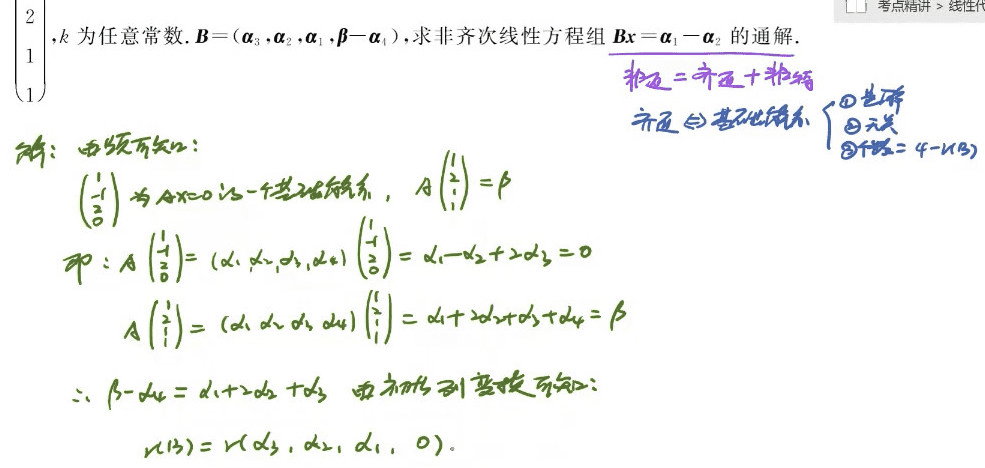 考点精讲 > 线性代
2
1
1
,k 为任意常数. B=(α₃,α₂,α₁,β-α₄),求非齐次线性方程组 Bx=α₁-α₂ 的通解.
非通 = 齐通 + 非特
齐通 ⇔ 基础解系
① 是解
② 无关
③ 个数 = 4-r(B)
解: 由题可知:
(1 -1 2 0) 为 Ax=0 的一个基础解系, A(1 2 1 1) = β
即: A(1 -1 2 0) = (α₁,α₂,α₃,α₄)(1 -1 2 0) = α₁-α₂+2α₃=0
A(1 2 1 1) = (α₁ α₂ α₃ α₄)(1 2 1 1) = α₁+2α₂+α₃+α₄=β
∴ β-α₄ = α₁+2α₂+α₃ 由初等列变换可知:
r(B) = r(α₃, α₂, α₁, 0)。